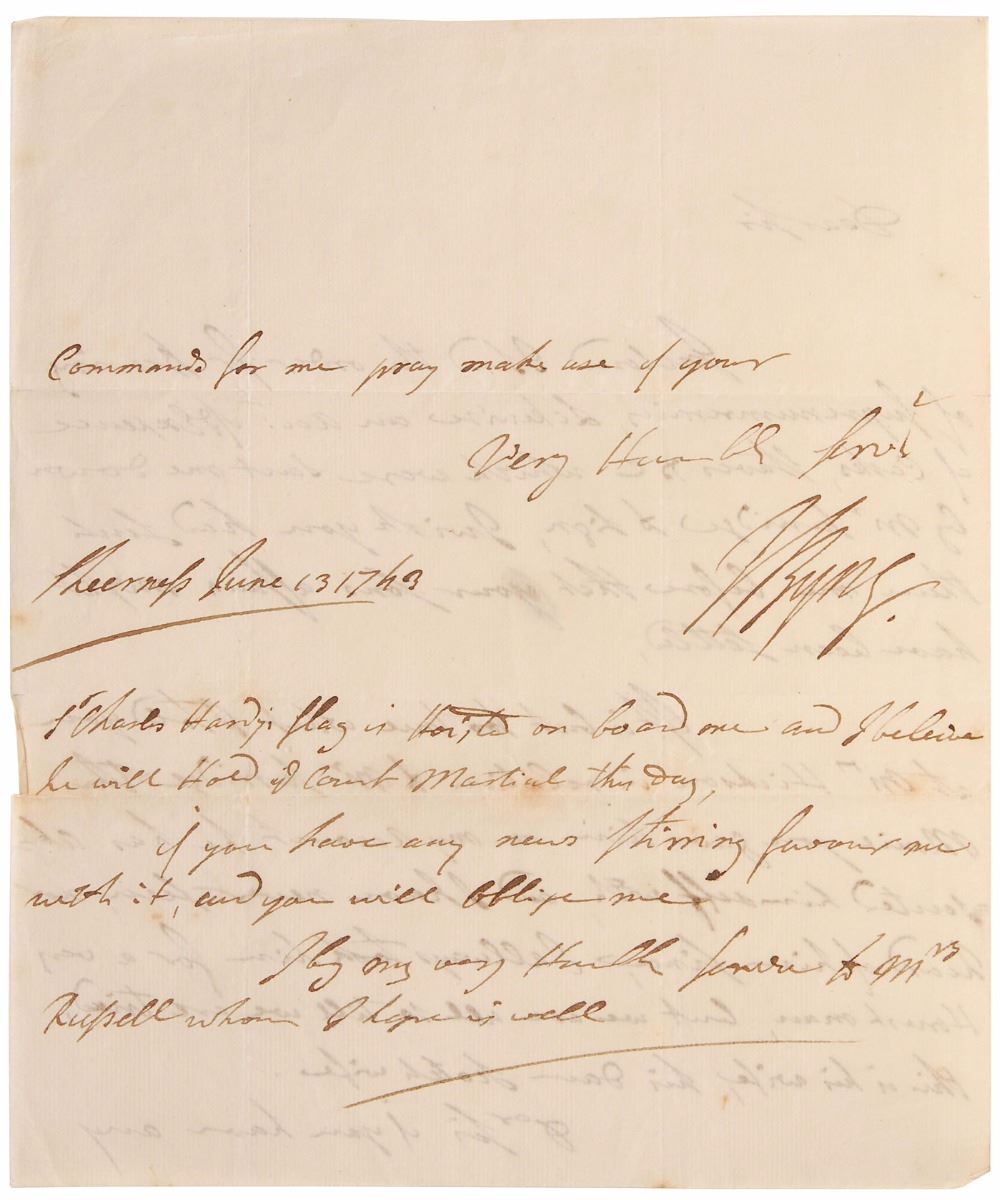 Commands for me pray make use of your
Very Humble Servt
JByng.
Sheerness June 13 1743
Sr Charles Hardys flag is Hoisted on board me and I beleive
he will Hold ye Court Martial this Day,
if you have any news Stirring favour me
with it, and you will Oblige me
I beg my very Humble Service to Mrs
Russell whom I hope is well